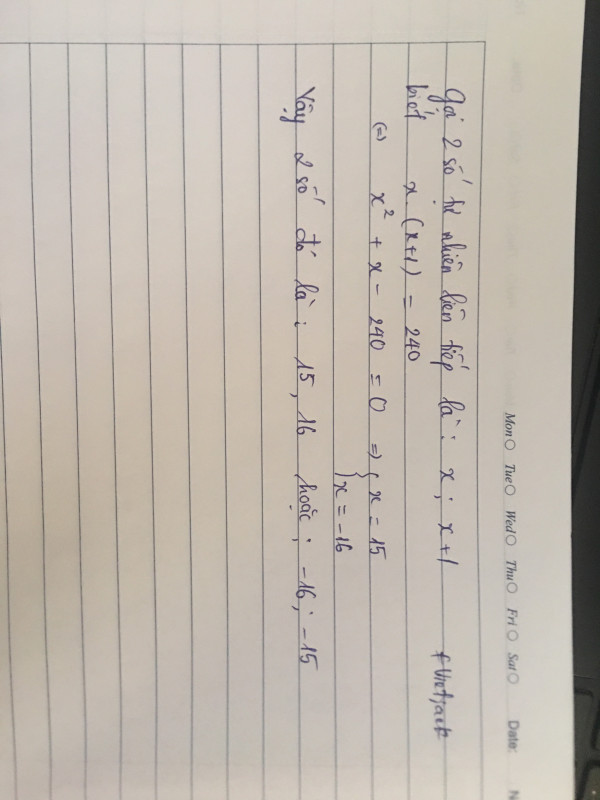 Mon Tue Wed Thu Fri Sat Date: N
Gọi 2 số tự nhiên liên tiếp là: x; x+1
biết x.(x+1) = 240
(=) x² + x - 240 = 0 => { x = 15
{ x = -16
Vậy 2 số đó là: 15, 16 hoặc: -16; -15
Vietjack